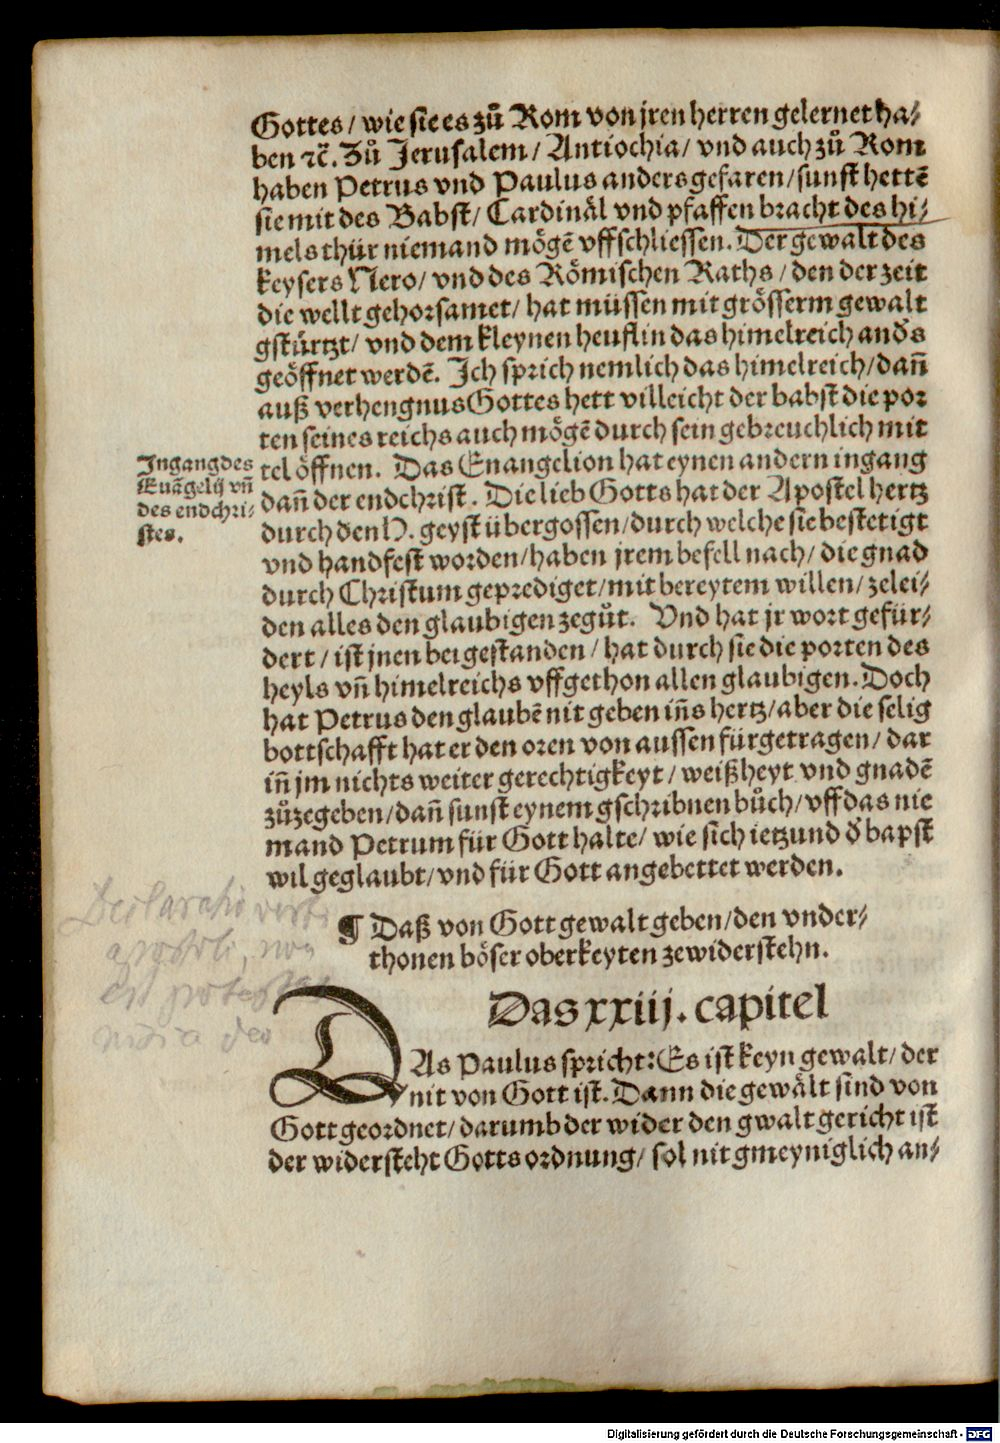 Gottes/ wie sie es zů Rom von jren herren gelernet ha-
ben ꝛc̃. Zů Jerusalem/ Antiochia/ vnd auch zů Rom
haben Petrus vnd Paulus anders gefaren/ sunst hettẽ
sie mit des Babst/ Cardinäl vnd pfaffen bracht des hi-
mels thür niemand mögẽ vffschliessen. Der gewalt des
keysers Nero/ vnd des Römischen Raths/ den der zeit
die wellt gehorsamet/ hat müssen mit grösserm gewalt
gstürtzt/ vnd dem kleynen heuflin das himelreich anďs
geöffnet werdẽ. Ich sprich nemlich das himelreich/ dañ
auß verhengnus Gottes hett villeicht der babst die por
ten seines reichs auch mögẽ durch sein gebreuchlich mit
tel öffnen. Das Enangelion hat eynen andern ingang
dañ der endchrist. Die lieb Gotts hat der Apostel hertz
durch den H. geyst übergossen/ durch welche sie bestetigt
vnd handfest worden/ haben jrem befell nach/ die gnad
durch Christum geprediget/ mit bereytem willen/ zelei-
den alles den glaubigen zegůt. Vnd hat jr wort gefür-
dert/ ist jnen beigestanden/ hat durch sie die porten des
heyls vñ himelreichs vffgethon allen glaubigen. Doch
hat Petrus den glaubẽ nit geben iñs hertz/ aber die selig
bottschafft hat er den oren von aussen fürgetragen/ dar
iñ jm nichts weiter gerechtigkeyt/ weißheyt vnd gnadẽ
zůzegeben/ dañ sunst eynem gschribnen bůch/ vff das nie
mand Petrum für Gott halte/ wie sich ietzund ď bapst
wil geglaubt/ vnd für Gott angebettet werden.
Ingang des
Euãgelij vñ
des endchri-
stes.
¶ Daß von Gott gewalt geben/ den vnder-
thonen böser oberkeyten zewiderstehn.
Das xxiij. capitel
DAs Paulus spricht: Es ist keyn gewalt/ der
nit von Gott ist. Dann die gewält sind von
Gott geordnet/ darumb der wider den gwalt gericht ist
der widersteht Gotts ordnung/ sol nit gmeyniglich an-
Declaratio verbi
apostoli, non
est potestas
nisi a deo
Digitalisierung gefördert durch die Deutsche Forschungsgemeinschaft - DFG